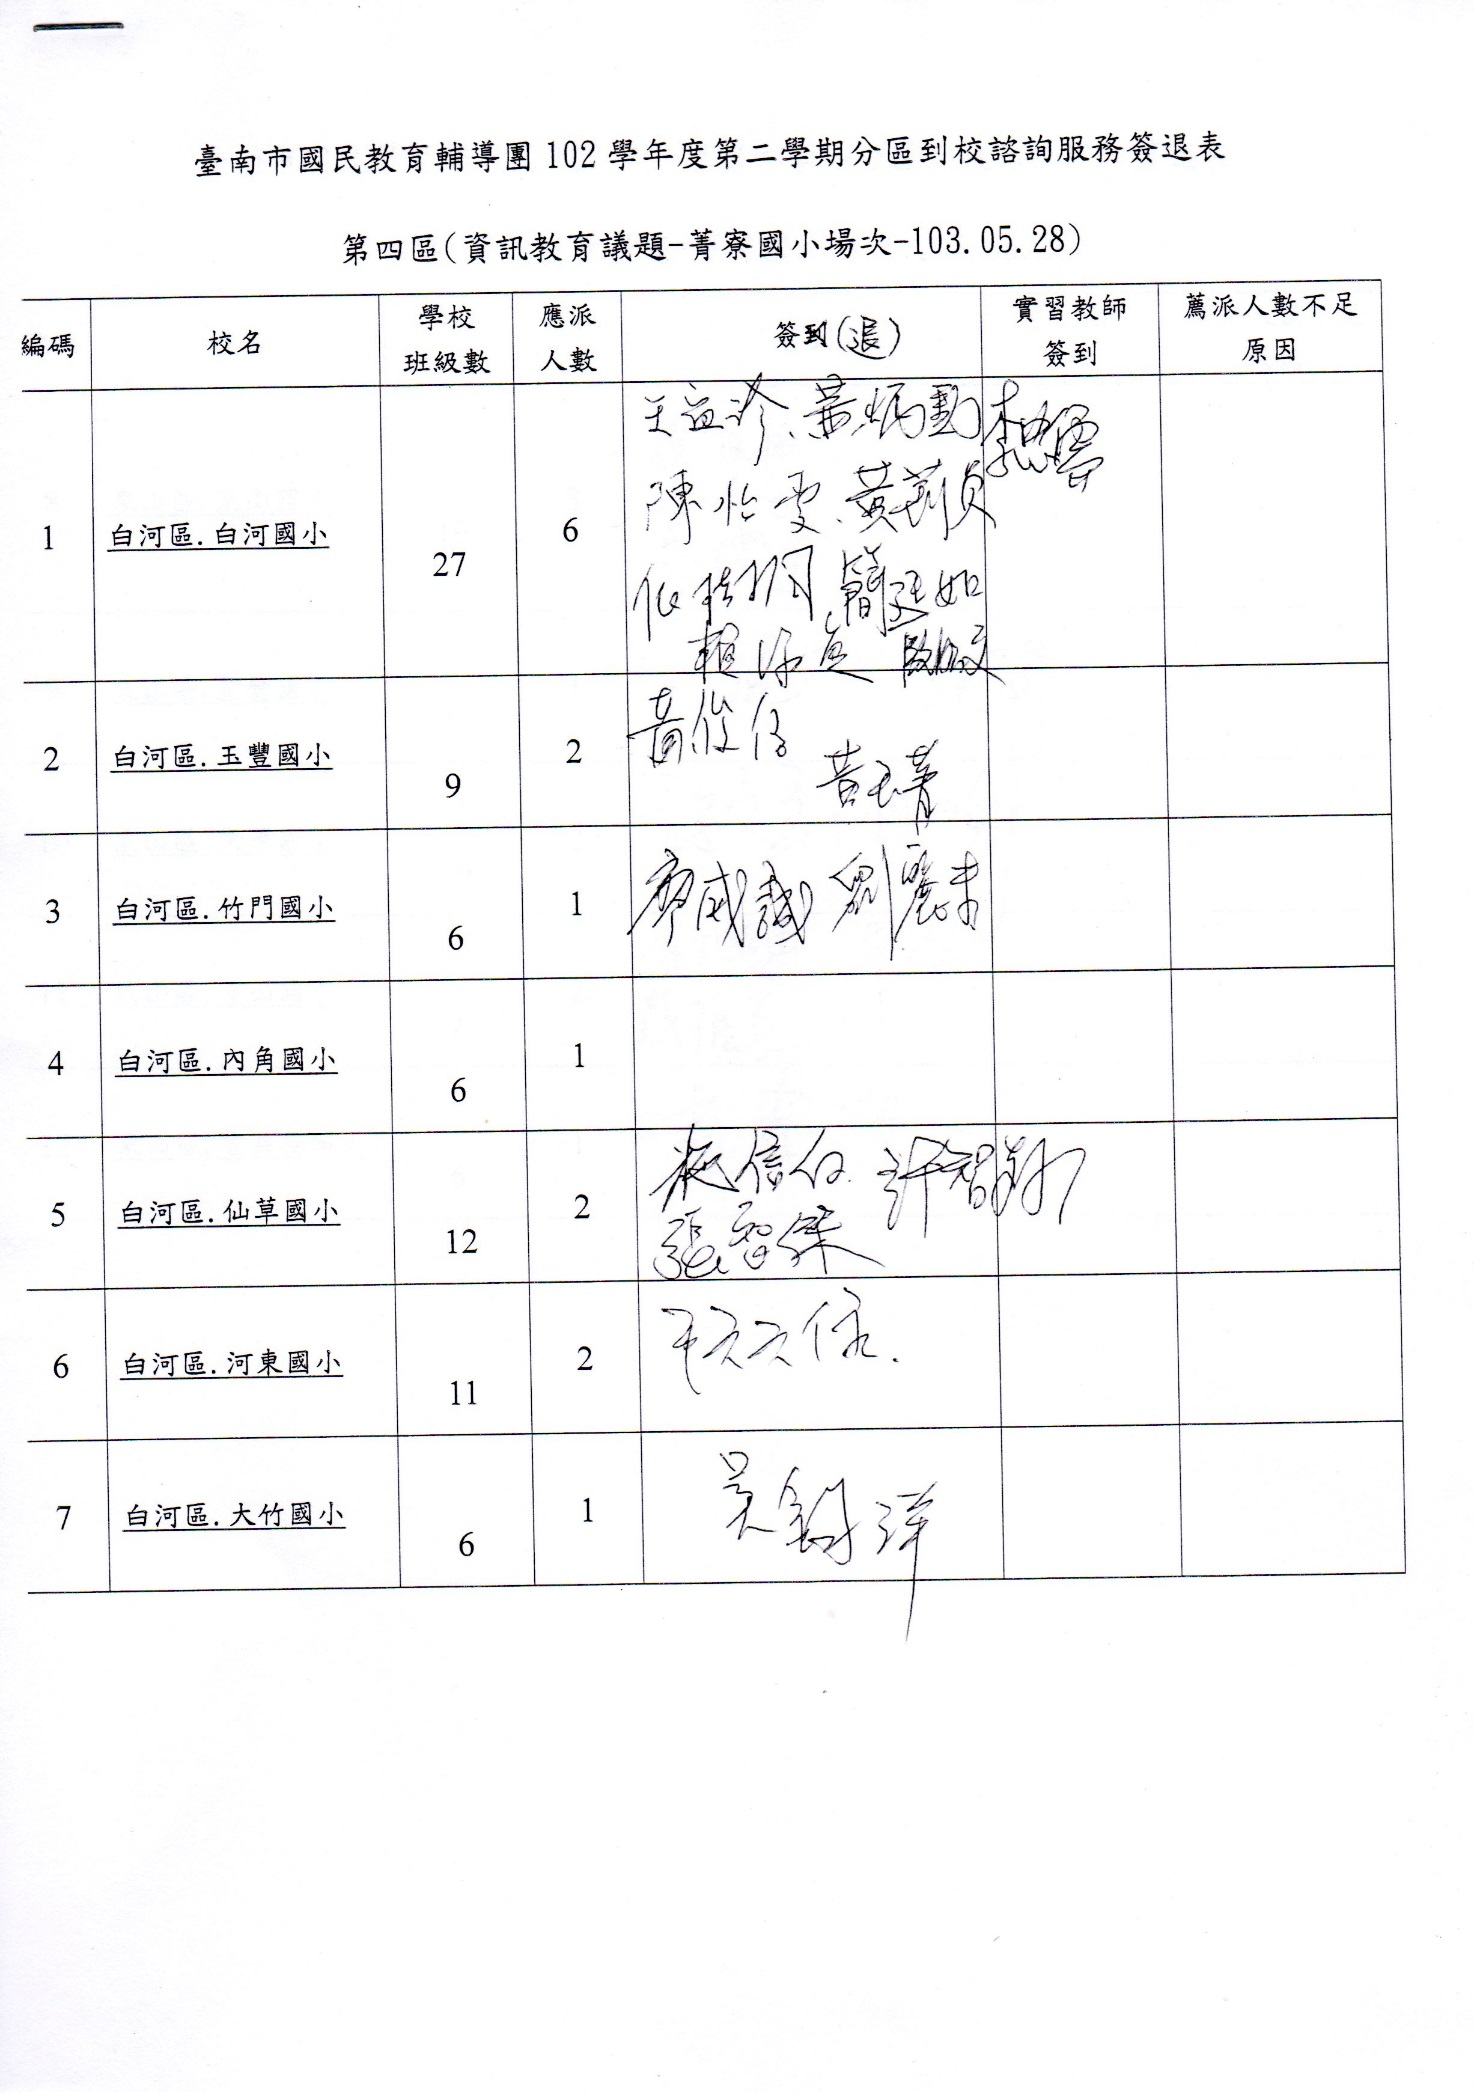 臺南市國民教育輔導團 102 學年度第二學期分區到校諮詢服務簽退表
第四區(資訊教育議題-菁寮國小場次-103.05.28)
編碼 校名 學校班級數 應派人數 簽到(退) 實習教師簽到 薦派人數不足原因
1 白河區.白河國小 27 6
王益珍、葉炳勳
陳怡雯、黃莉貞
2 白河區.玉豐國小 9 2
黃俊傑
黃玉菁
3 白河區.竹門國小 6 1 廖威誠
4 白河區.內角國小 6 1
5 白河區.仙草國小 12 2 許智翔
張智傑
6 白河區.河東國小 11 2
7 白河區.大竹國小 6 1